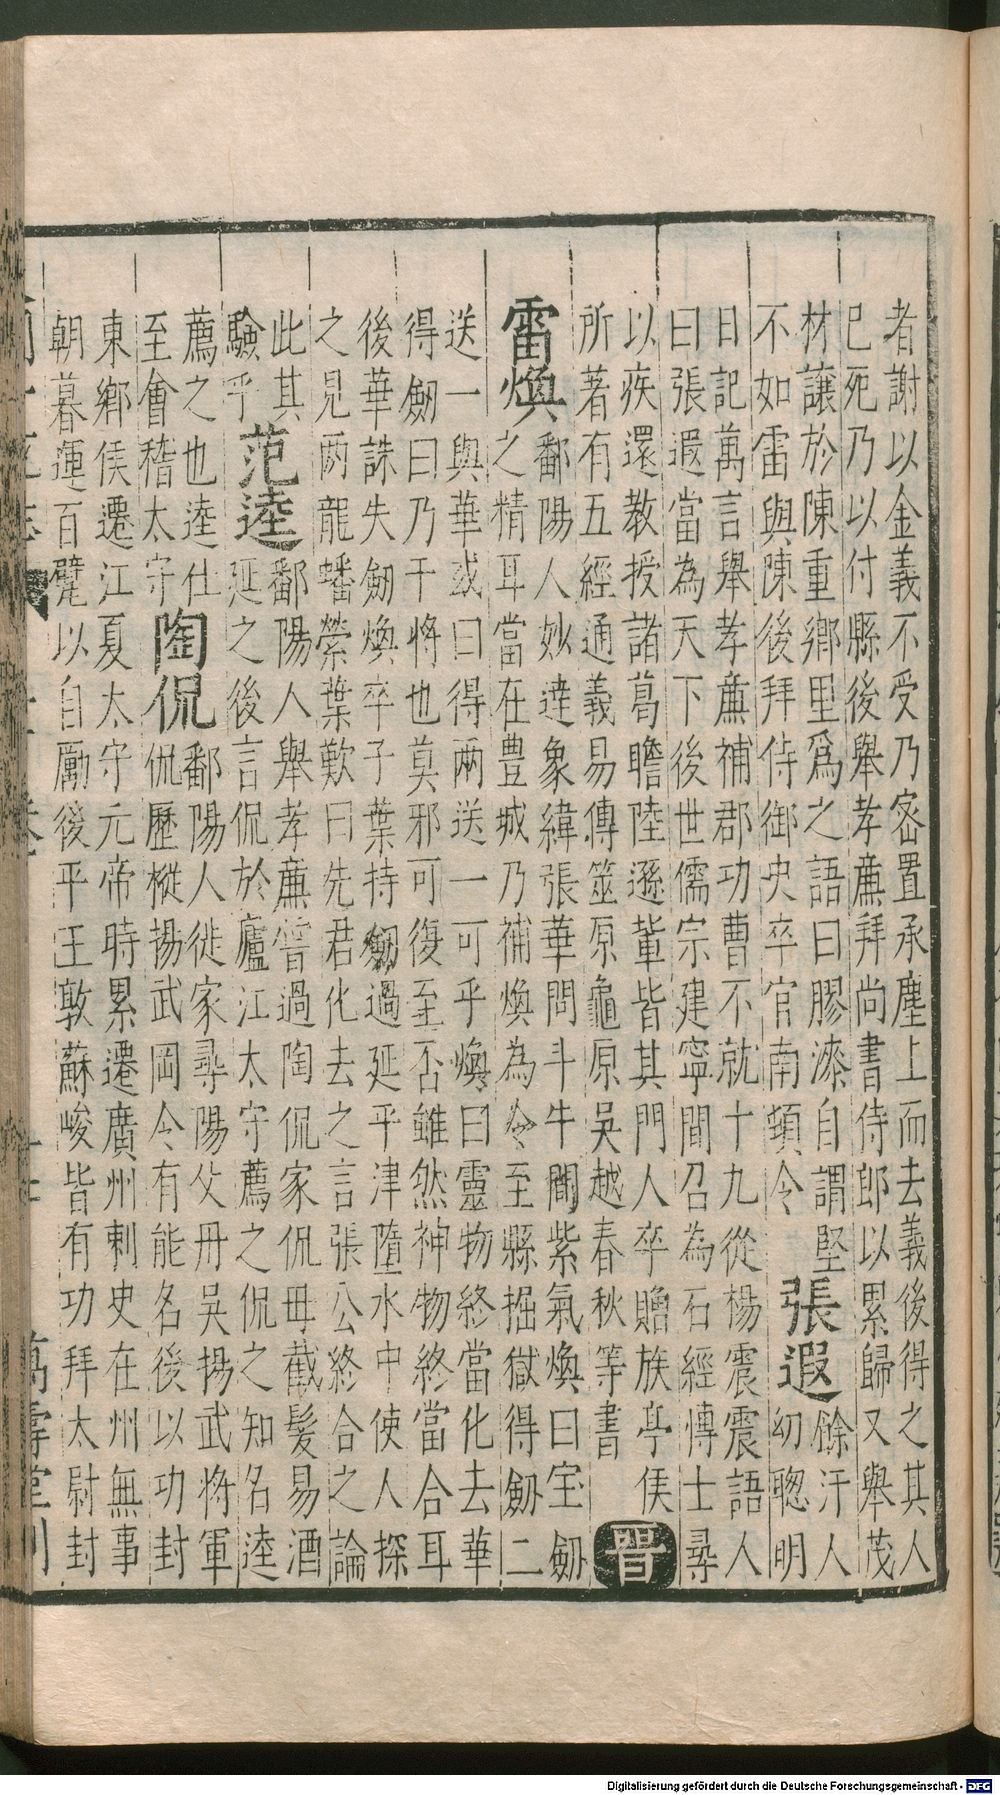 者謝以金義不受乃宻置承塵上而去義後得之其人
已死乃以付縣後舉孝廉拜尚書侍郎以累歸又舉茂
材讓於陳重鄉里爲之語曰膠漆自謂堅
不如雷與陳後拜侍御史卒官南頓令
張遐
餘汗人
幼聰明
日記萬言舉孝廉補郡功曹不就十九從楊震震語人
曰張遐當為天下後世儒宗建寧間召為石經博士尋
以疾還教授諸葛瞻陸遜軰皆其門人卒贈族亭侯
所著有五經通義易傳筮原龜原吳越春秋等書
晉
雷煥
鄱陽人妙達象緯張華問斗牛間紫氣煥曰宝劒
之精耳當在豊城乃補煥為令至縣掘獄得劒二
送一與華或曰得兩送一可乎煥曰靈物終當化去華
得劒曰乃干將也莫邪可復至否雖然神物終當合耳
後華誅失劒煥卒子葉持劒過延平津墮水中使人探
之見兩龍蟠縈葉歎曰先君化去之言張公終合之論
此其
驗乎
范逵
鄱陽人舉孝廉嘗過陶侃家侃毋截髮易酒
延之後言侃於廬江太守薦之侃之知名逵
薦之也逵仕
至會稽太守
陶侃
鄱陽人徙家尋陽父丹吳揚武將軍
侃歷樅揚武岡令有能名後以功封
東鄉侯遷江夏太守元帝時累遷廣州刺史在州無事
朝暮運百甓以自勵後平王敦蘇峻皆有功拜太尉封
Digitalisierung gefördert durch die Deutsche Forschungsgemeinschaft - DFG